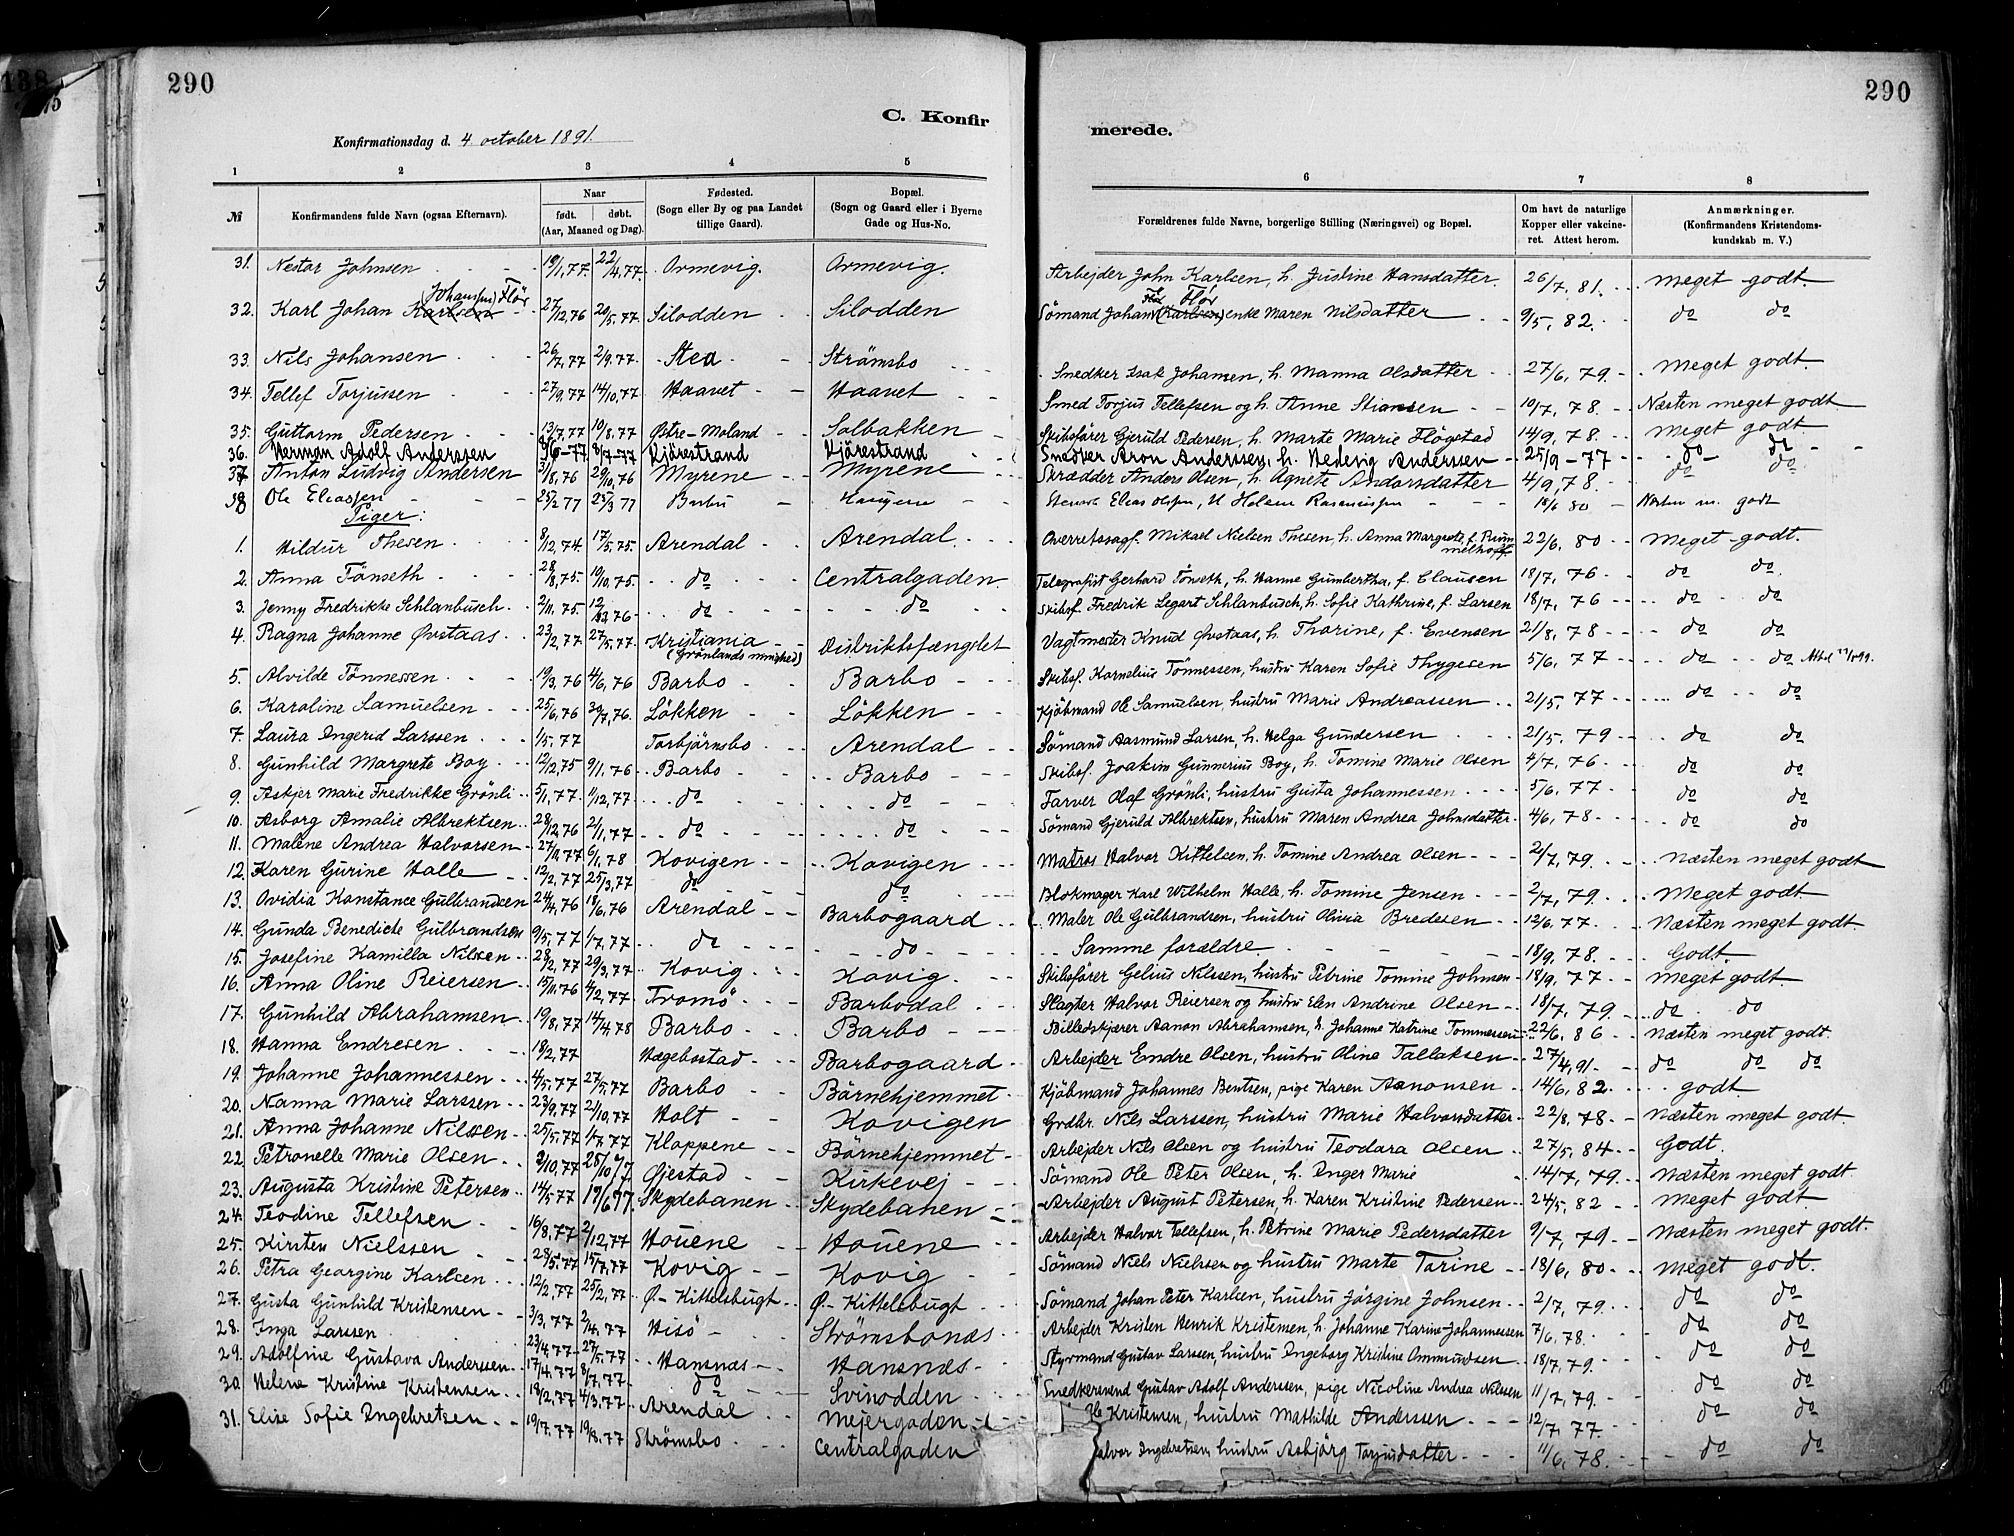 290
C. Konfir
Konfirmationsdag d. 4 october 1891.
1 2 3 4 5
№ Konfirmandens fulde Navn (ogsaa Efternavn). Naar født. døbt. (Aar, Maaned og Dag). Fødested. (Sogn eller By og paa Landet tillige Gaard). Bopæl. (Sogn og Gaard eller i Byerne Gade og Hus-No.
31. Nestor Johnsen 19/1,77. 22/4,77. Ormevig. Ormevig.
(Johansen) Flör
32. Karl Johan Karlsen 27/12,76 20/5,77. Silodden Silodden
33. Nils Johansen 26/7,77 2/9,77. Stea Strömsbo
34. Tellef Torjussen 27/9,77 14/10,77 Haavet Haavet
35. Guttorm Pedersen 13/7,77 10/8,77 Østre-Moland Solbakken
36. Herman Adolf Anderssen 8/7-77 Kjörestrand Kjörestrand
37 Anton Ludvig Andersen 31/8,76 29/10,76 Myrene Myrene
38 Ole Eliassen 23/2 77 25/3 77 Barbu
Piger:
1. Hildur Thesen 8/12,74. 17/5,75. Arendal Arendal
2. Anna Tönseth 28/8,75. 10/10,75. do Centralgaden
3. Jenny Fredrikke Schlanbusch 2/11,75. 12/12,76 do do
4. Ragna Johanne Øvstaas 23/2,77 27/5,77. Kristiania (Grönlands menighed) Distriktsfængslet
5. Alvilde Tönnessen 19/3,76 4/6,76 Barbo Barbo
6. Karoline Samuelsen 25/6,76 30/7,76. Lökken Lökken
7. Laura Ingerid Larssen 1/5,77 Torbjörnsbo Arendal
8. Gunhild Margrete Boy 12/12,75 9/1,76 Barbo Barbo
9. Asbjer Marie Fredrikke Grönli 5/1,77. 11/12,77 do do
10. Asborg Amalie Albrektsen 28/12,76 2/1,77 do do
11. Malene Andrea Halvorsen 27/11,77 6/1,78 Kovigen Kovigen
12. Karen Gurine Halle 12/2,77 25/3,77 do do
13. Ovidia Konstance Gulbrandsen 24/4,76 18/6,76 Arendal Barbogaard
14. Gunda Benedicte Gulbrandsen 9/5,77 1/7,77 do do
15. Josefine Kamilla Nilsen 28/2,77 29/3,77 Kovig Kovig
16. Anna Oline Reiersen 15/11,76 4/2,77 Tromö Barbodal
17. Gunhild Abrahamsen 19/8,77 14/4,78 Barbo Barbo
18. Hanna Endresen 18/2,77 Hægebostad Barbogaard
19. Johanne Johannessen 4/5,77 27/5,77 Barbo Börnehjemmet
20. Nanna Marie Larssen 23/9,77 21/10,77 Holt Kovigen
21. Anna Johanne Nilsen 25/5,77 1/7,77 Kloppene Börnehjemmet
22. Petronelle Marie Olsen 2/10,77 28/10/77 Øjestad Kirkevej
23. Augusta Kristine Petersen 14/5,77 17/6,77. Skydebanen Skydebanen
24. Teodine Tellefsen 16/8,77 2/12,77 Houene Houene
25. Kirsten Nielssen 28/5,77 15/7,77 Kovig Kovig
26. Petra Georgine Karlsen 12/2,77 25/2,77 Ø-Kittelsbugt Ø-Kittelsbugt
27. Gusta Gunhild Kristensen 3/3,77 2/4,77 Hisö Strömsbonæs
28. Inga Larssen 23/4,77 27/5,77 Hansnæs Hansnæs
29. Adolfine Gustava Anderssen 17/4,77 8/7,77 do Svinodden
30. Helene Kristine Kristensen 18/2,77 4/3,77 Arendal Mejergaden
31. Elise Sofie Ingebretsen 19/7,77 19/8,77 Strömsbo Centralgaden
290
merede.
6 7 8
Forældrenes fulde Navne, borgerlige Stilling (Næringsvei) og Bopæl. Om havt de naturlige Kopper eller vakcineret. Attest herom. Anmærkninger. (Konfirmandens Kristendomskundskab m. V.)
Arbejder John Karlsen, h. Justine Hansdatter. 26/7,81. meget godt.
Flör
Sömand Johan (Karlsen) enke Maren Nilsdatter 9/5,82. do do
Snedker Isak Johansen, h. Manna Olsdatter 27/6,79. meget godt.
Smed Torjus Tellefsen og h. Anne Stiansen 10/7,78. Næsten meget godt
Skibsfører Gjeruld Pedersen, h. Marte Marie Flögstad 14/9,78. meget godt
Snedker Aron Anderssen, h. Hedevig Anderssen 25/9-77 do do
Skrædder Anders Olsen, h. Agnete Andersdatter 4/9,78. do do
Elias Olsen, h Helene Rasmussen 18/6 80 Næsten m. godt
Overretssagf. Mikael Nielsen Thesen, h. Anna Margrete, f. Rummelhoff 22/6,80 Meget godt.
Telegrafist Gerhard Tönseth, h. Hanne Gumbertha, f. Clausen 18/7,76 do do
Skibsf. Fredrik Legart Schlanbusch, h. Sofie Kathrine, f. Larsen 18/7,76 do do
Vagtmester Knud Øvstaas, h. Thorine, f. Evensen 21/8,78 do do
Skibsf. Kornelius Tönnessen, hustru Karen Sofie Thygesen 5/6,77 do do
Kjöbmand Ole Samuelsen, hustru Marie Andreassen 21/5,77 do do
Sömand Aasmund Larsen, h. Helga Gundersen 21/5,79 do do
Skibsf. Joakim Gunnerius Boy, h. Tomine Marie Olsen 4/7,76 do do
Farver Olaf Grönli, hustru Gusta Johannessen 5/6,77 do do
Sömand Gjeruld Albrektsen, hustru Maren Andrea Johnsdatter 4/6,78 do do
Matros Halvor Kittelsen, h. Tomine Andrea Olsen 2/7,79. Næsten meget godt
Blokmager Karl Wilhelm Halle, h. Tomine Jensen 2/7,79. Meget godt.
Maler Ole Gulbrandsen, hustru Olivia Bredesen 12/6,77. Næsten meget godt.
Samme forældre 18/9,78. Godt.
Skibsfører Gelius Nilssen, hustru Petrine Tomine Johnsen 18/9,77 meget godt.
Slagter Halvor Reiersen og hustru Elen Andrine Olsen 18/7,79. do do
Billedskjærer Aanon Abrahamsen, h. Johanne Katrine Tommessen 22/6,86 Næsten meget godt.
Arbejder Endre Olsen, hustru Oline Tallaksen 27/4,91 do do do
Kjöbmand Johannes Bentsen, pige Karen Aanonsen 14/6,82. godt
Grdbr. Nils Larssen, hustru Marie Halvorsdatter 22/8,78. Næsten meget godt.
Arbejder Nils Olsen og hustru Teodara Olsen 27/5,84. Godt.
Sömand Ole Peter Olsen, h. Inger Marie 14/7,79. Næsten meget godt
Arbejder August Petersen, h. Karen Kristine Pedersen 24/5,82 meget godt
Arbejder Halvor Tellefsen, h. Petrine Marie Pedersdatter 9/7,79 Næsten meget godt.
Sömand Niels Nielssen og hustru Marte Torine 18/6,80. meget godt.
Sömand Johan Peter Karlsen, hustru Jörgine Johnsen 2/7,79. do do
Arbejder Kristen Henrik Kristensen, h. Johanne Karine Johannessen 7/6,78. do do
Styrmand Gustav Larssen, hustru Ingeborg Kristine Ommundsen 18/7,79. do do
Snedkersvend Gustav Adolf Anderssen, pige Nicoline Andrea Nilssen 11/7,79. do do
Kristensen, hustru Mathilde Anderssen 12/7,77. do do
alvor Ingebretsen, hustru Asbjörg Torjusdatter 11/6,78. do do